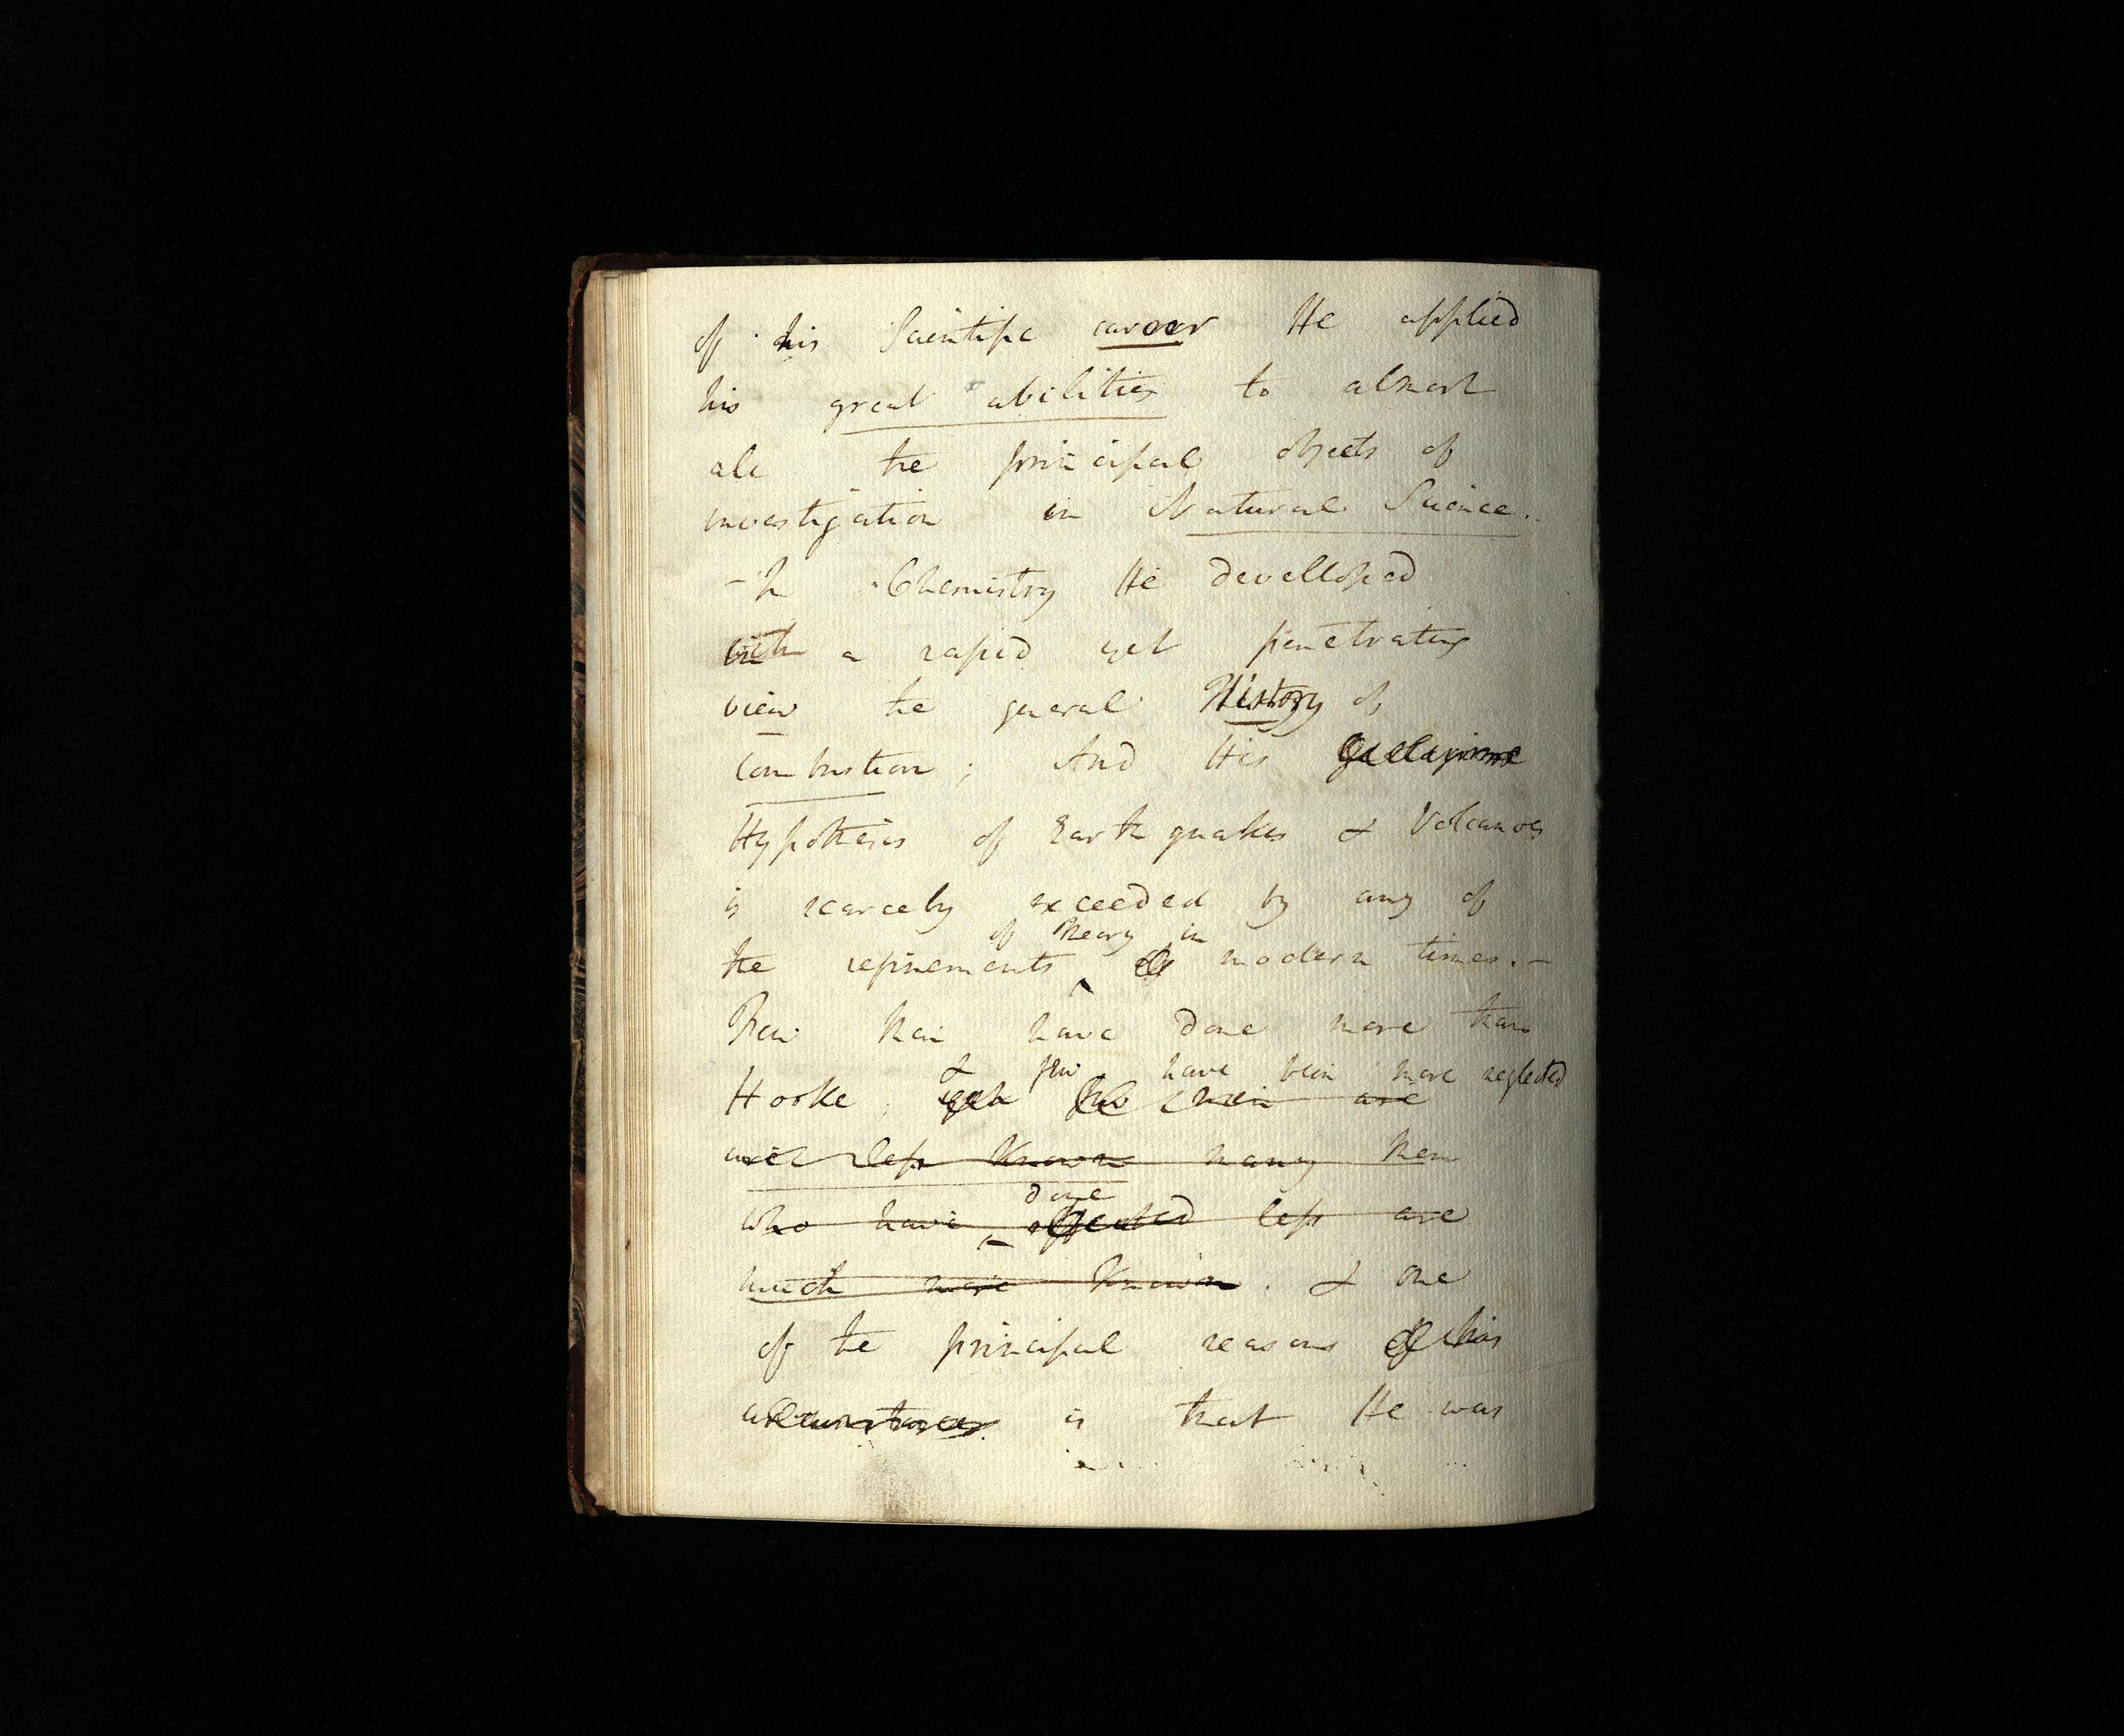 of his Scientific career He applied
his great abilities to almost
all the principal objects of
investigation in Natural Science.
- In Chemistry He developed
with a rapid yet penetrating
view the general History of
Combustion; And His
Hypothesis of Earthquakes & Volcanoes
is scarcely exceeded by any of
of Theory in
the refinements modern times. -
Few Men have done more than
& few have been more neglected
Hooke; yet few men are
less known many Men
done
who have effected less are
much more known. & one
of the principal reasons of his
is that He was